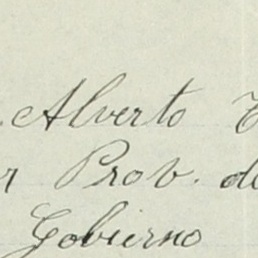 Alverto
r Prov. de
Gobierno